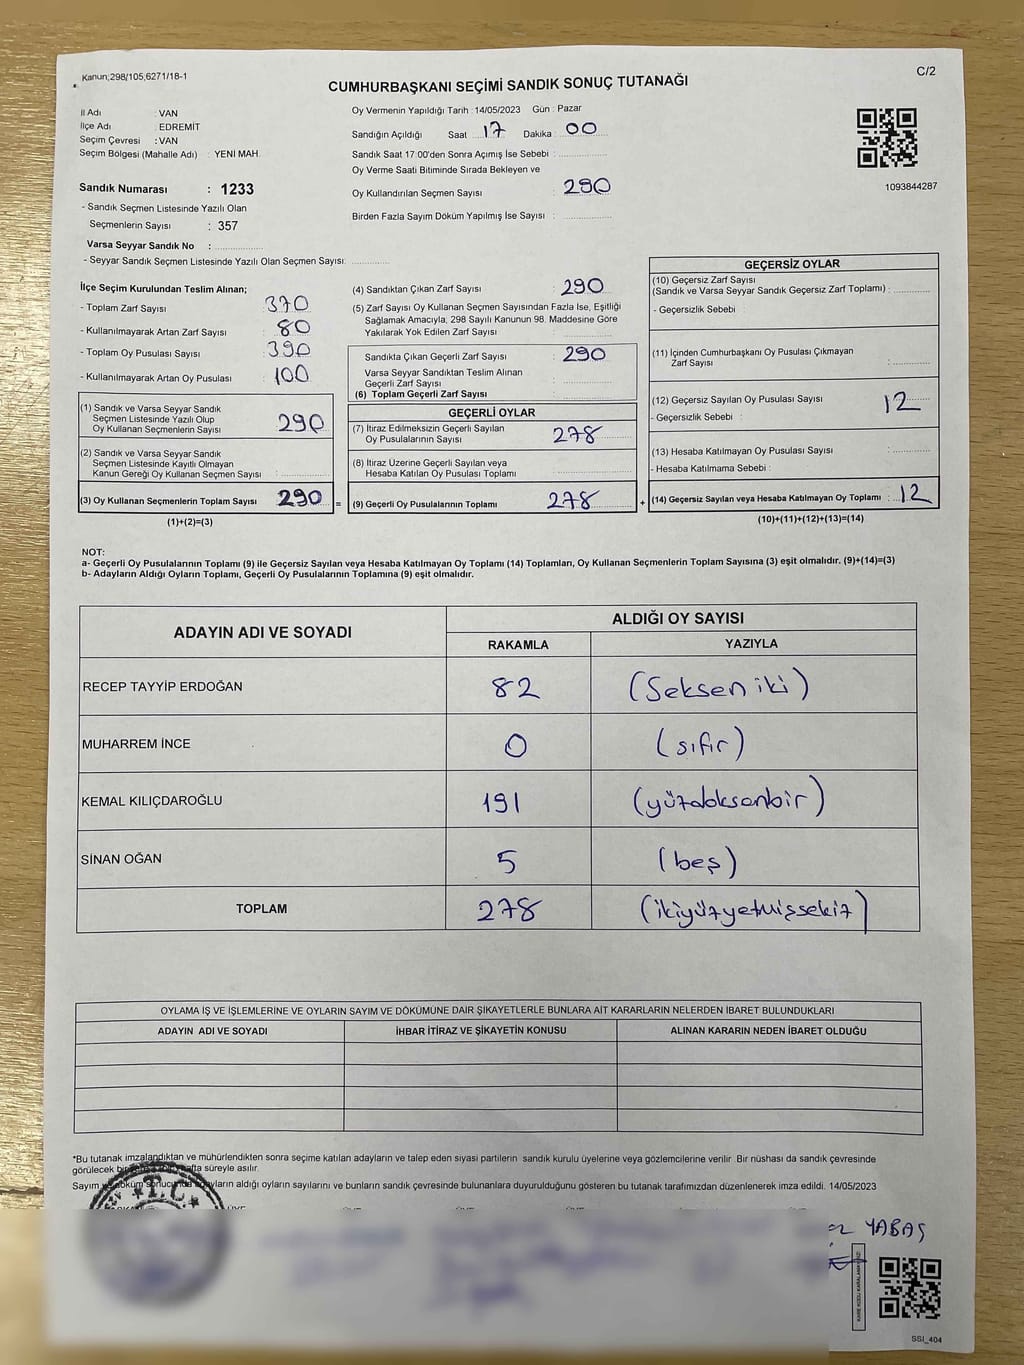 Kanun;298/105,6271/18-1
C/2
CUMHURBAŞKANI SEÇİMİ SANDIK SONUÇ TUTANAĞI
İl Adı : VAN
İlçe Adı : EDREMİT
Seçim Çevresi : VAN
Seçim Bölgesi (Mahalle Adı) : YENİ MAH.
Sandık Numarası : 1233
- Sandık Seçmen Listesinde Yazılı Olan
Seçmenlerin Sayısı : 357
Varsa Seyyar Sandık No :
- Seyyar Sandık Seçmen Listesinde Yazılı Olan Seçmen Sayısı:
Oy Vermenin Yapıldığı Tarih : 14/05/2023 Gün : Pazar
Sandığın Açıldığı Saat 17 Dakika : 00
Sandık Saat 17:00'den Sonra Açımış İse Sebebi :
Oy Verme Saati Bitiminde Sırada Bekleyen ve
Oy Kullandırılan Seçmen Sayısı : 290
Birden Fazla Sayım Döküm Yapılmış İse Sayısı :
1093844287
İlçe Seçim Kurulundan Teslim Alınan;
- Toplam Zarf Sayısı : 370
- Kullanılmayarak Artan Zarf Sayısı : 80
- Toplam Oy Pusulası Sayısı : 390
- Kullanılmayarak Artan Oy Pusulası : 100
(1) Sandık ve Varsa Seyyar Sandık
Seçmen Listesinde Yazılı Olup
Oy Kullanan Seçmenlerin Sayısı : 290
(2) Sandık ve Varsa Seyyar Sandık
Seçmen Listesinde Kayıtlı Olmayan
Kanun Gereği Oy Kullanan Seçmen Sayısı :
(3) Oy Kullanan Seçmenlerin Toplam Sayısı : 290 =
(1)+(2)=(3)
(4) Sandıktan Çıkan Zarf Sayısı : 290
(5) Zarf Sayısı Oy Kullanan Seçmen Sayısından Fazla İse, Eşitliği
Sağlamak Amacıyla; 298 Sayılı Kanunun 98. Maddesine Göre
Yakılarak Yok Edilen Zarf Sayısı :
Sandıkta Çıkan Geçerli Zarf Sayısı : 290
Varsa Seyyar Sandıktan Teslim Alınan
Geçerli Zarf Sayısı :
(6) Toplam Geçerli Zarf Sayısı :
GEÇERLİ OYLAR
(7) İtiraz Edilmeksizin Geçerli Sayılan
Oy Pusulalarının Sayısı : 278
(8) İtiraz Üzerine Geçerli Sayılan veya
Hesaba Katılan Oy Pusulası Toplamı :
(9) Geçerli Oy Pusulalarının Toplamı : 278 +
GEÇERSİZ OYLAR
(10) Geçersiz Zarf Sayısı
(Sandık ve Varsa Seyyar Sandık Geçersiz Zarf Toplamı) :
- Geçersizlik Sebebi :
(11) İçinden Cumhurbaşkanı Oy Pusulası Çıkmayan
Zarf Sayısı :
(12) Geçersiz Sayılan Oy Pusulası Sayısı : 12
- Geçersizlik Sebebi :
(13) Hesaba Katılmayan Oy Pusulası Sayısı :
- Hesaba Katılmama Sebebi :
(14) Geçersiz Sayılan veya Hesaba Katılmayan Oy Toplamı : 12
(10)+(11)+(12)+(13)=(14)
NOT:
a- Geçerli Oy Pusulalarının Toplamı (9) ile Geçersiz Sayılan veya Hesaba Katılmayan Oy Toplamı (14) Toplamları, Oy Kullanan Seçmenlerin Toplam Sayısına (3) eşit olmalıdır. (9)+(14)=(3)
b- Adayların Aldığı Oyların Toplamı, Geçerli Oy Pusulalarının Toplamına (9) eşit olmalıdır.
ADAYIN ADI VE SOYADI
ALDIĞI OY SAYISI
RAKAMLA YAZIYLA
RECEP TAYYİP ERDOĞAN 82 (Seksen iki)
MUHARREM İNCE 0 (sıfır)
KEMAL KILIÇDAROĞLU 191 (yüzdoksanbir)
SİNAN OĞAN 5 (beş)
TOPLAM 278 (ikiyüzyetmişsekiz)
OYLAMA İŞ VE İŞLEMLERİNE VE OYLARIN SAYIM VE DÖKÜMÜNE DAİR ŞİKAYETLERLE BUNLARA AİT KARARLARIN NELERDEN İBARET BULUNDUKLARI
ADAYIN ADI VE SOYADI İHBAR İTİRAZ VE ŞİKAYETİN KONUSU ALINAN KARARIN NEDEN İBARET OLDUĞU
*Bu tutanak imzalandıktan ve mühürlendikten sonra seçime katılan adayların ve talep eden siyasi partilerin sandık kurulu üyelerine veya gözlemcilerine verilir. Bir nüshası da sandık çevresinde
görülecek süreyle asılır.
Sayım aldığı oyların sayılarını ve bunların sandık çevresinde bulunanlara duyurulduğunu gösteren bu tutanak tarafımızdan düzenlenerek imza edildi. 14/05/2023
T.C.
YABAŞ
SSI_404